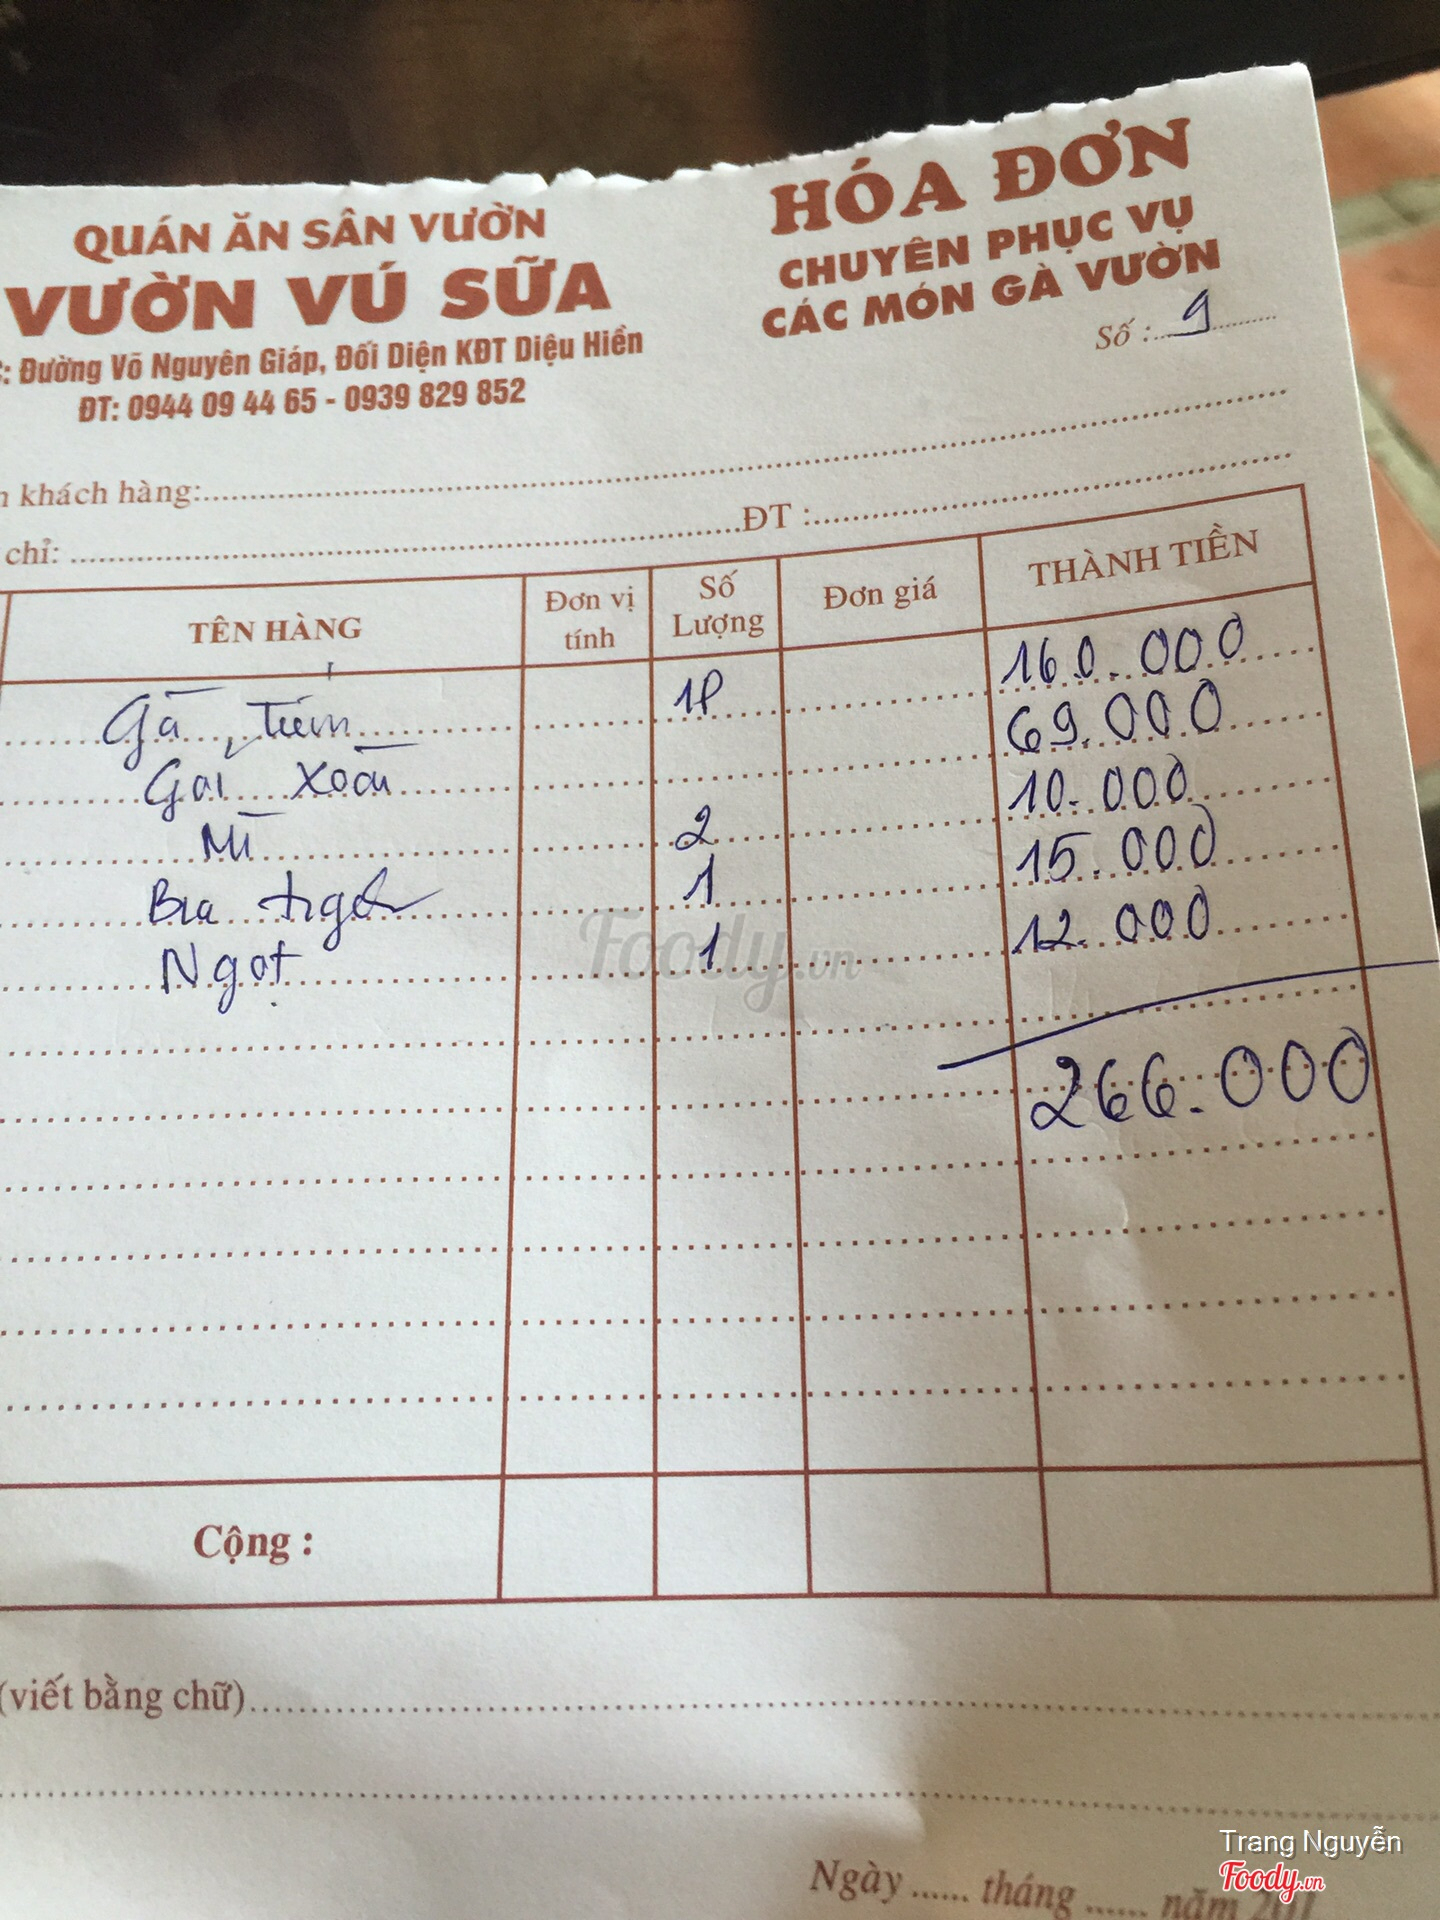 QUÁN ĂN SÂN VƯỜN
VƯỜN VÚ SỮA
C: Đường Võ Nguyên Giáp, Đối Diện KĐT Diệu Hiền
ĐT: 0944 09 44 65 - 0939 829 852
HÓA ĐƠN
CHUYÊN PHỤC VỤ
CÁC MÓN GÀ VƯỜN
Số : 9
n khách hàng:
chỉ: ĐT :
TÊN HÀNG Đơn vị tính Số Lượng Đơn giá THÀNH TIỀN
Gà Tiềm 1P 160.000
Gỏi Xoài 69.000
Mì 2 10.000
Bia 1 15.000
Ngọt 1 12.000
266.000
Cộng :
(viết bằng chữ)
Ngày ...... tháng ...... năm 201
Foody.vn
Trang Nguyễn
Foody.vn